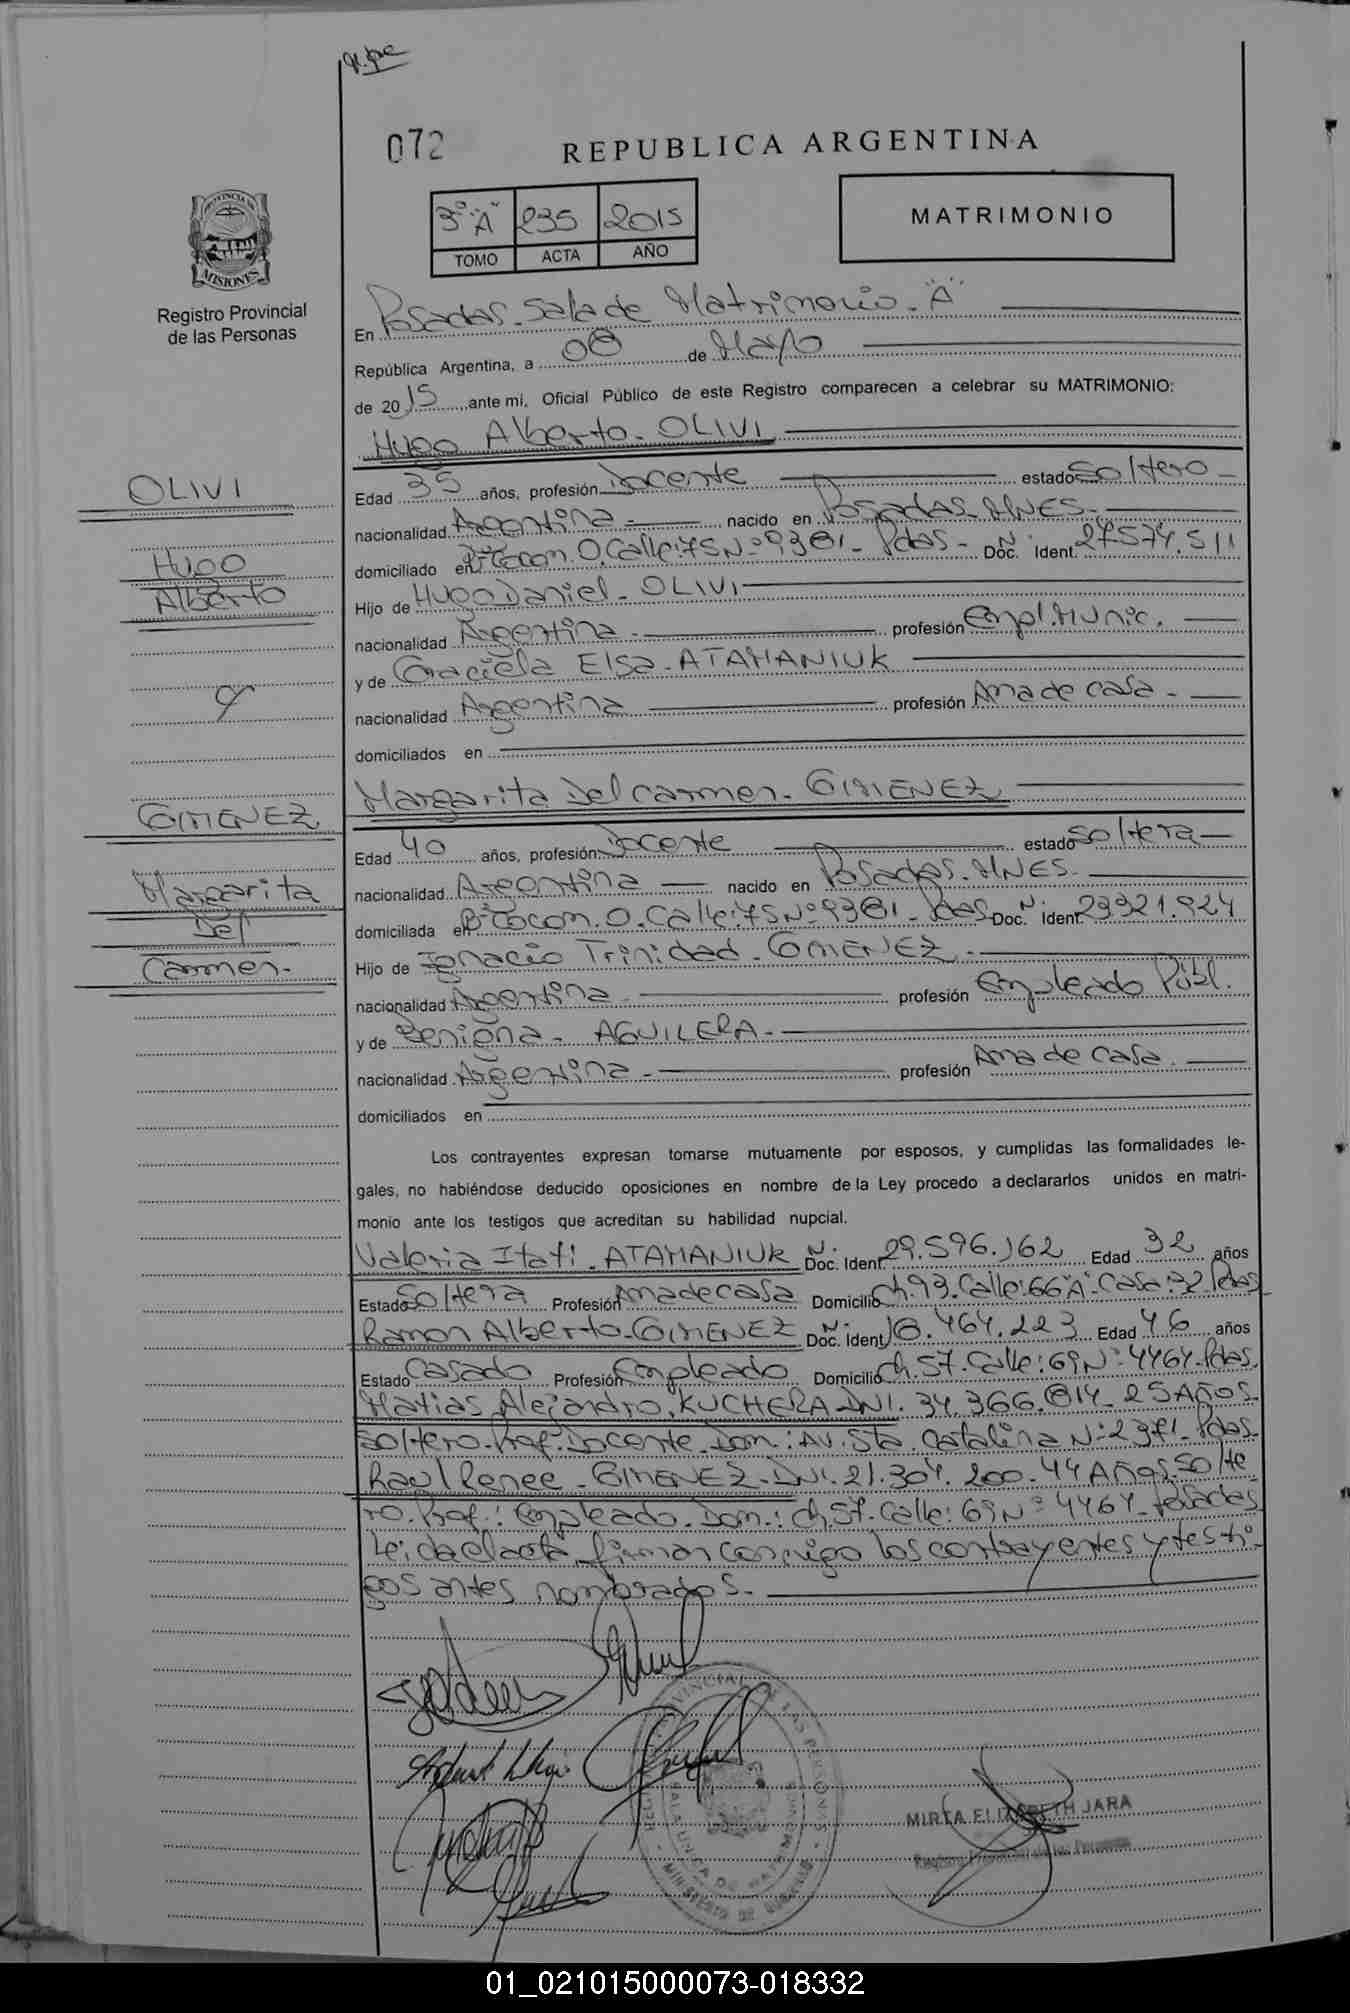 072
REPUBLICA ARGENTINA
3º "A" 235 2015
TOMO ACTA AÑO
MATRIMONIO
PROVINCIA DE
MISIONES
Registro Provincial
de las Personas
En Posadas. Sala de Matrimonio. "A"
República Argentina, a 08 de Mayo
de 2015, ante mi, Oficial Público de este Registro comparecen a celebrar su MATRIMONIO:
Hugo Alberto. OLIVI
OLIVI
Hugo
Alberto
y
GIMENEZ
Margarita
Del
Carmen.
Edad 35 años, profesión Docente estado Soltero
nacionalidad Argentina nacido en Posadas. MNES.
domiciliado en Bº Cocom. O. Calle: 75 Nº 9381. Pdas. Nº Doc. Ident. 27.574.511
Hijo de Hugo Daniel. OLIVI
nacionalidad Argentina. profesión Empl. Munic.
y de Graciela Elsa. ATAMANIUK
nacionalidad Argentina profesión Ama de casa.
domiciliados en
Margarita Del Carmen. GIMENEZ
Edad 40 años, profesión Docente estado Soltera
nacionalidad Argentina nacido en Posadas. MNES.
domiciliada en Bº Cocom. O. Calle: 75 Nº 9381. Pdas. Nº Doc. Ident. 23.921.924
Hijo de Ignacio Trinidad. GIMENEZ.
nacionalidad Argentina profesión Empleado Públ.
y de Benigna. AGUILERA.
nacionalidad Argentina. profesión Ama de casa.
domiciliados en
Los contrayentes expresan tomarse mutuamente por esposos, y cumplidas las formalidades le-
gales, no habiéndose deducido oposiciones en nombre de la Ley procedo a declararlos unidos en matri-
monio ante los testigos que acreditan su habilidad nupcial.
Valeria Itati. ATAMANIUK Nº Doc. Ident. 29.596.162 Edad 32 años
Estado Soltera Profesión Ama de casa Domicilio Ch. 93. Calle: 66 "A" Casa: 32. Pdas
Ramon Alberto. GIMENEZ Nº Doc. Ident. 18.464.223 Edad 46 años
Estado Casado Profesión Empleado Domicilio Ch. 57. Calle: 69 Nº 4464. Pdas.
Matias Alejandro. KUCHERA. DNI. 34.366.814. 25 Años.
Soltero. Prof: Docente. Dom: Av. Sta. Catalina Nº 2371. Pdas.
Raul Renee. GIMENEZ. DNI. 21.304.200. 44 Años. Solte
ro. Prof.: Empleado. Dom.: Ch. 57. Calle: 69 Nº 4464. Posadas
Leida el acta, firman conmigo los contrayentes y testi-
gos antes nombrados.
MIRTA ELIZABETH JARA
Registro Provincial de las Personas
01_021015000073-018332